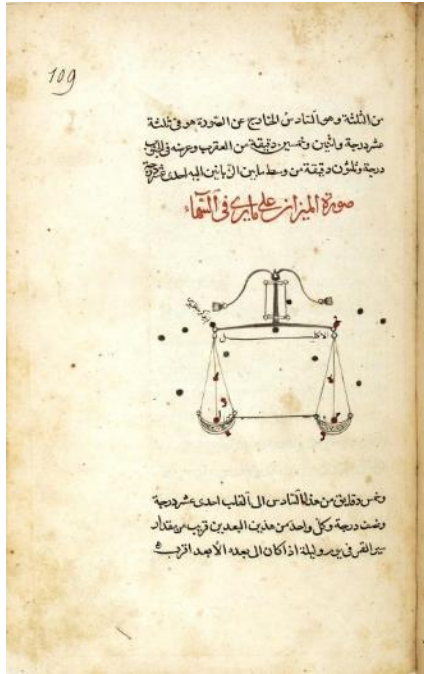 109
من الثلثة وهى السادس الخارج عن الصورة هو فى ثلثة
عشر درجة واثنين وخمسين دقيقة من العقرب وعرضه فى
درجة وثلثون دقيقة من وسط مابين الزبانين اليه احدى عشر درجة
صورة الميزان على مايرى فى السماء
الاكليل
وخمس دقايق من هذا السادس الى القلب احدى عشر درجة
ونصف درجة وكل واحد من هذين البعدين قريب من مقدار
سير القمر فى يوم وليلة اذا كان الى بعده الابعد اقرب